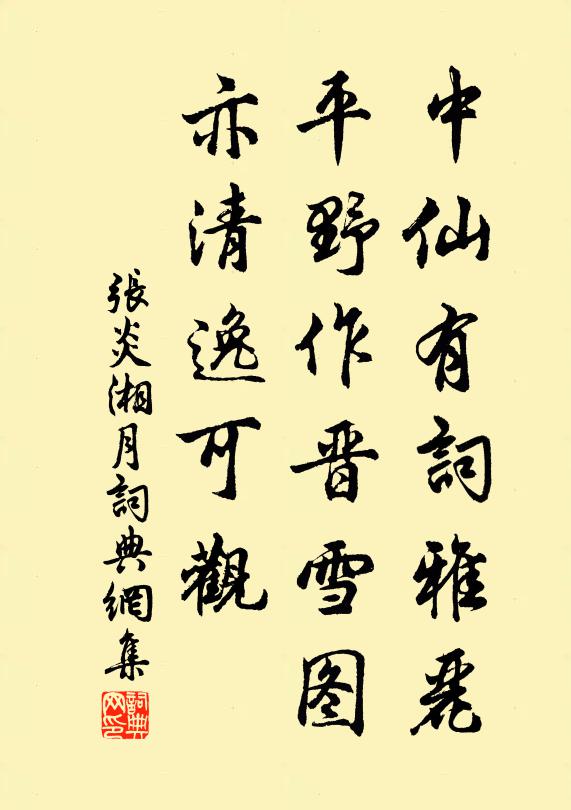 中仙有詞雅麗
平野作晋雪图
亦清逸可觀
張炎湘月詞典網集
詞典网印